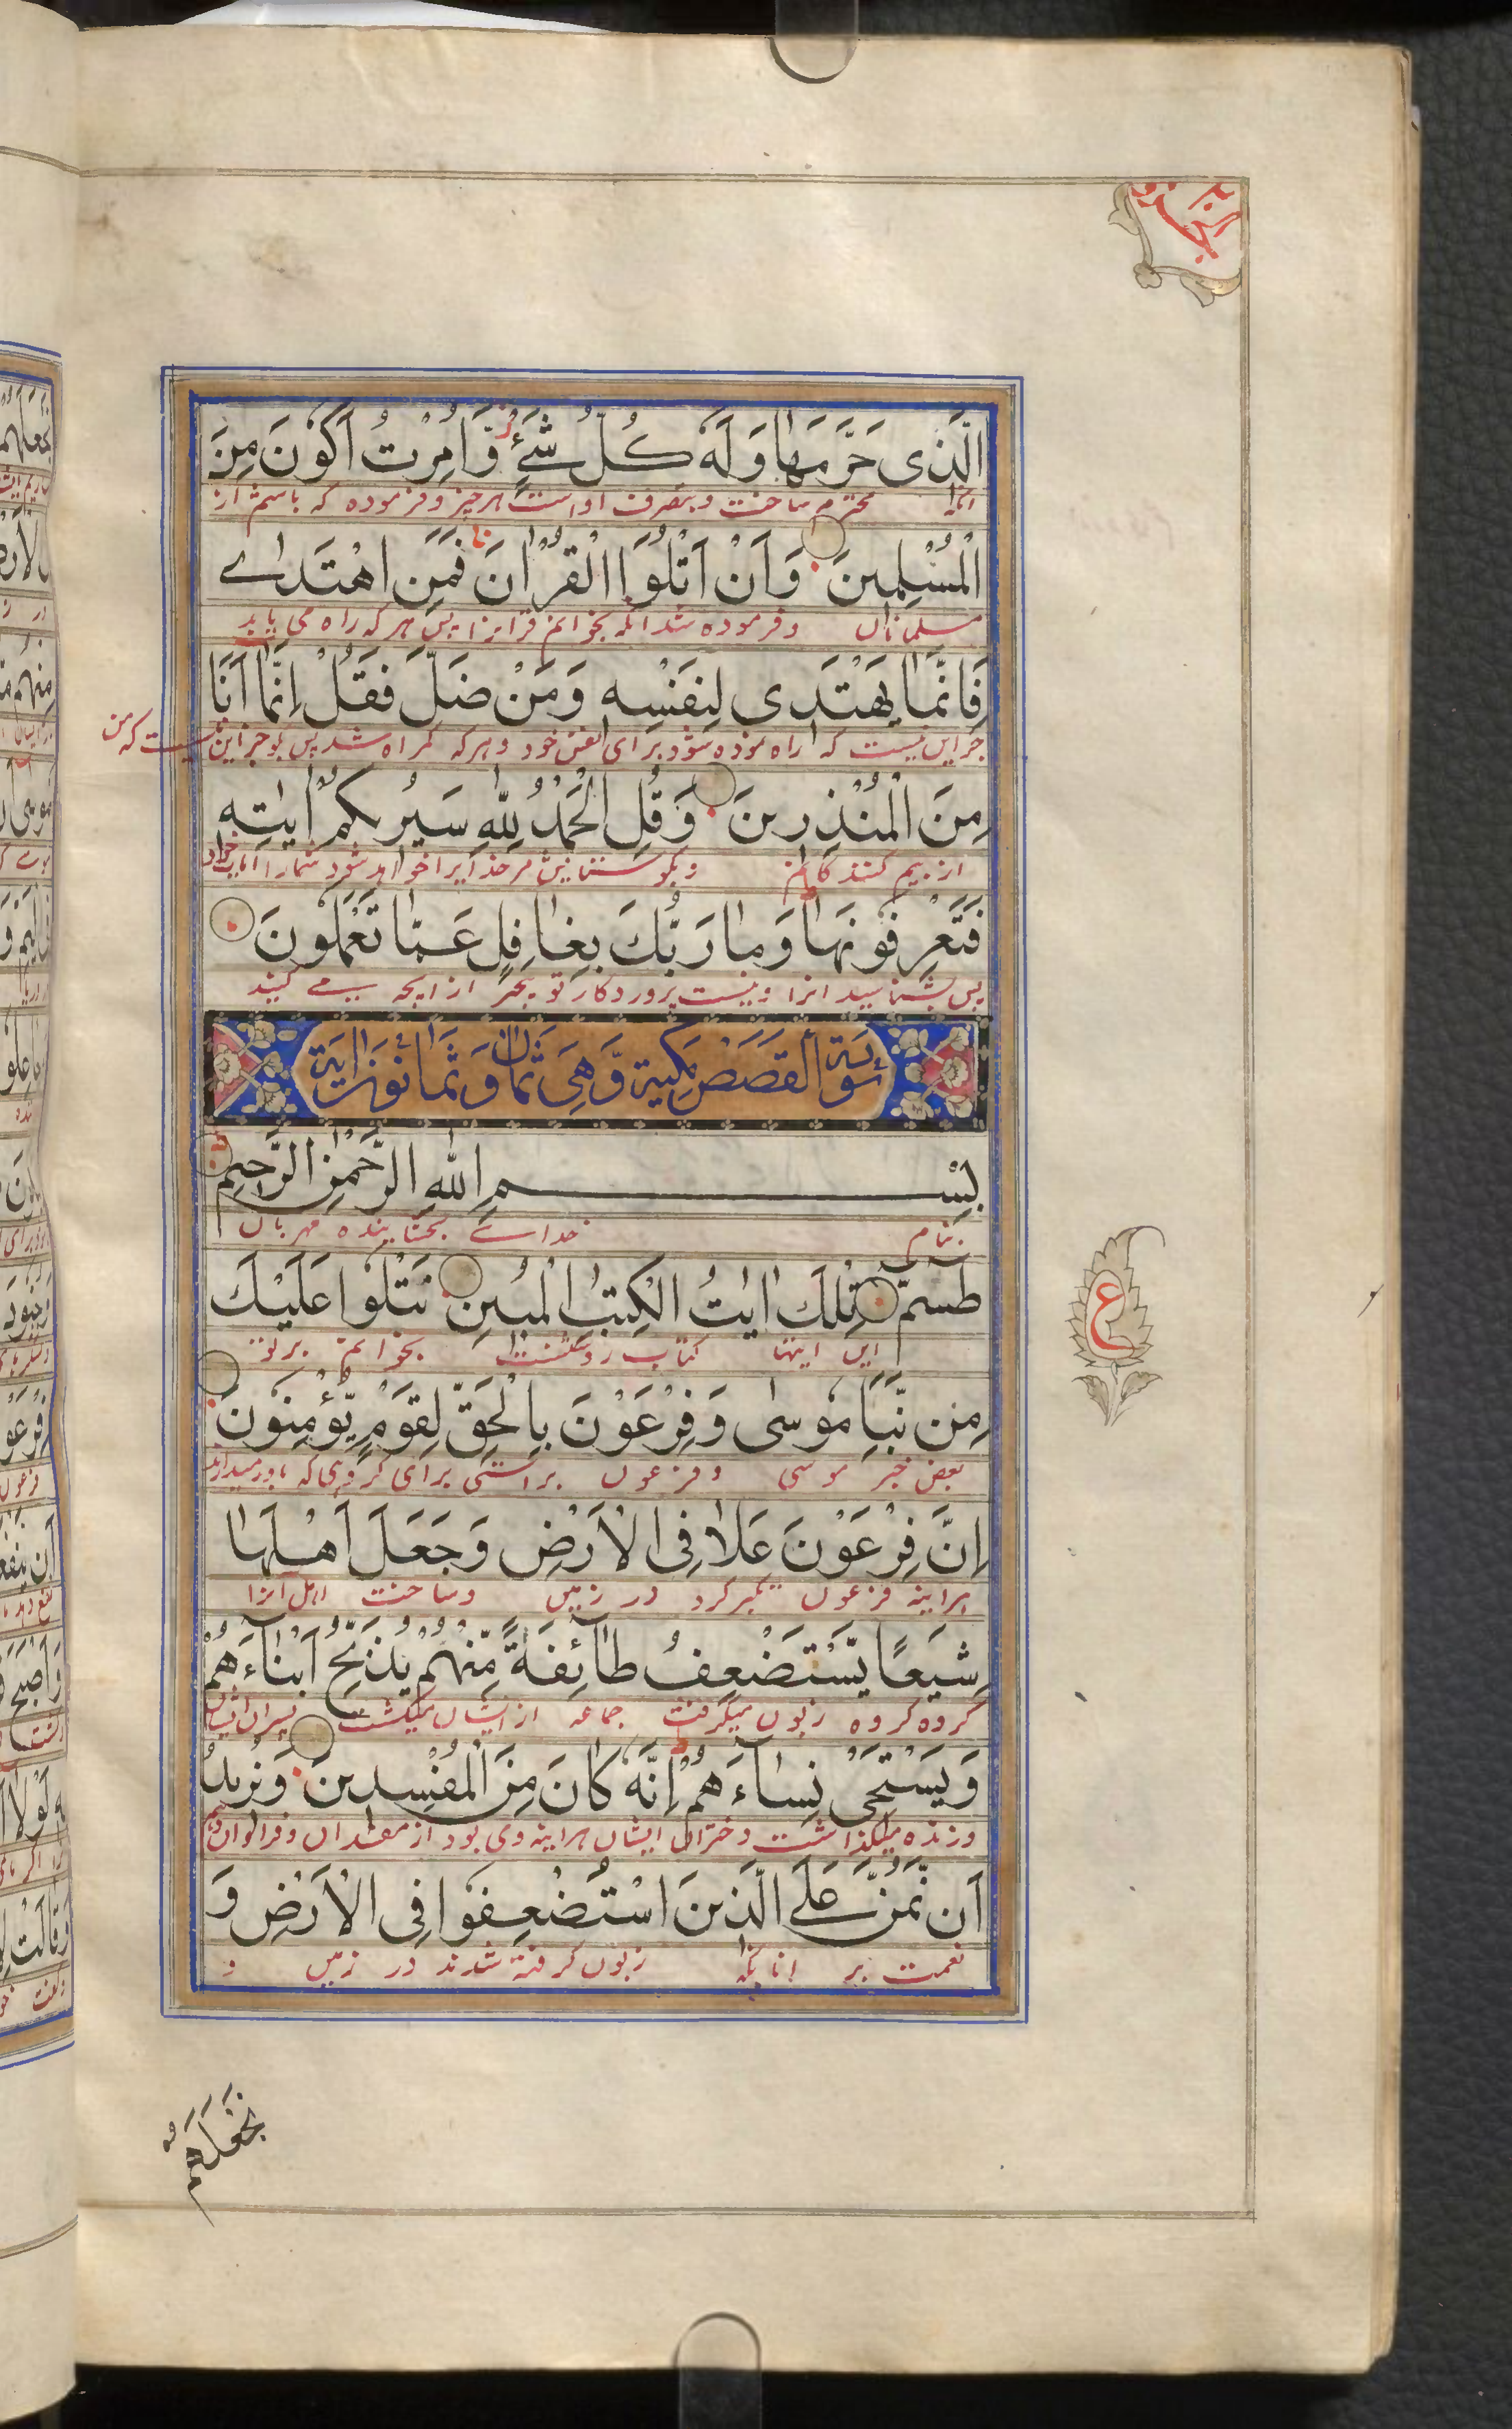 الَّذِى حَرَّمَهَا وَلَهٗ كُلُّ شَىْءٍ وَّاُمِرْتُ اَنْ اَكُوْنَ مِنَ
محترم ساخت و بتصرف اوست هر چیز و فرموده که باشم از
الْمُسْلِمِيْنَ وَاَنْ اَتْلُوَا الْقُرْاٰنَ فَمَنِ اهْتَدٰى
مسلمانان وفرموده شد انکه بخوانم قرانرا پس هر که راه می یابد
فَاِنَّمَا يَهْتَدِى لِنَفْسِهٖ وَمَنْ ضَلَّ فَقُلْ اِنَّمَا اَنَا
جز این نیست که راه نموده شود برای نفس خود و هرکه گمراه شد پس بگو جز این نیست که من
مِنَ الْمُنْذِرِيْنَ وَقُلِ الْحَمْدُ لِلّٰهِ سَيُرِيْكُمْ اٰيٰتِهٖ
از بیم کنندگانم و بگو ستایش مر خدایرا خواهد شمارا
فَتَعْرِفُوْنَهَا وَمَا رَبُّكَ بِغَافِلٍ عَمَّا تَعْمَلُوْنَ
پس بشناسید انرا و نیست پروردگار تو بیخبر از انچه میکنید
سُوْرَةُ الْقَصَصِ مَكِّيَّةٌ وَّهِىَ ثَمَانٌ وَثَمَانُوْنَ اٰيَةً
بِسْمِ اللّٰهِ الرَّحْمٰنِ الرَّحِيْمِ
بنام خدای بخشاینده مهربان
طٰسٓمّٓ تِلْكَ اٰيٰتُ الْكِتٰبِ الْمُبِيْنِ نَتْلُوْا عَلَيْكَ
این ایتها کتاب روشنست بخوانیم برتو
مِنْ نَّبَاِ مُوْسٰى وَفِرْعَوْنَ بِالْحَقِّ لِقَوْمٍ يُّؤْمِنُوْنَ
بعض خبر موسی و فرعون براستی برای گروهی که باور میدارند
اِنَّ فِرْعَوْنَ عَلَا فِى الْاَرْضِ وَجَعَلَ اَهْلَهَا
هراینه فرعون تکبر کرد در زمین وساخت اهل انرا
شِيَعًا يَّسْتَضْعِفُ طَآئِفَةً مِّنْهُمْ يُذَبِّحُ اَبْنَآءَهُمْ
گروه گروه زبون میگرفت جماعه از ایشان میکشت پسران ایشان
وَيَسْتَحْىٖ نِسَآءَهُمْ اِنَّهٗ كَانَ مِنَ الْمُفْسِدِيْنَ وَنُرِيْدُ
وزنده میگذاشت دختران ایشان هراینه وی بود از مفسدان
اَنْ نَّمُنَّ عَلَى الَّذِيْنَ اسْتُضْعِفُوْا فِى الْاَرْضِ وَ
نعمت بر انانکه زبون گرفته شدند در زمین و
ع
نَجْعَلَهُمْ